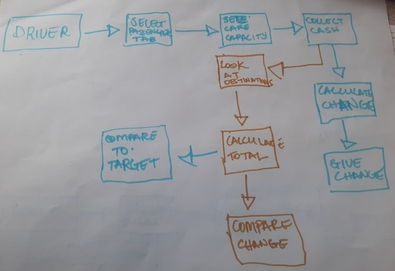 DRIVER
SELECT
PASSENGER
TAB
CAPACITY
COLLECT
CASH
LOOK
AT
DESTINATIONS
CALCULATE
CHANGE
COMPARE
TO
TARGET
CALCULATE
TOTAL
GIVE
CHANGE
COMPARE
CHANGE